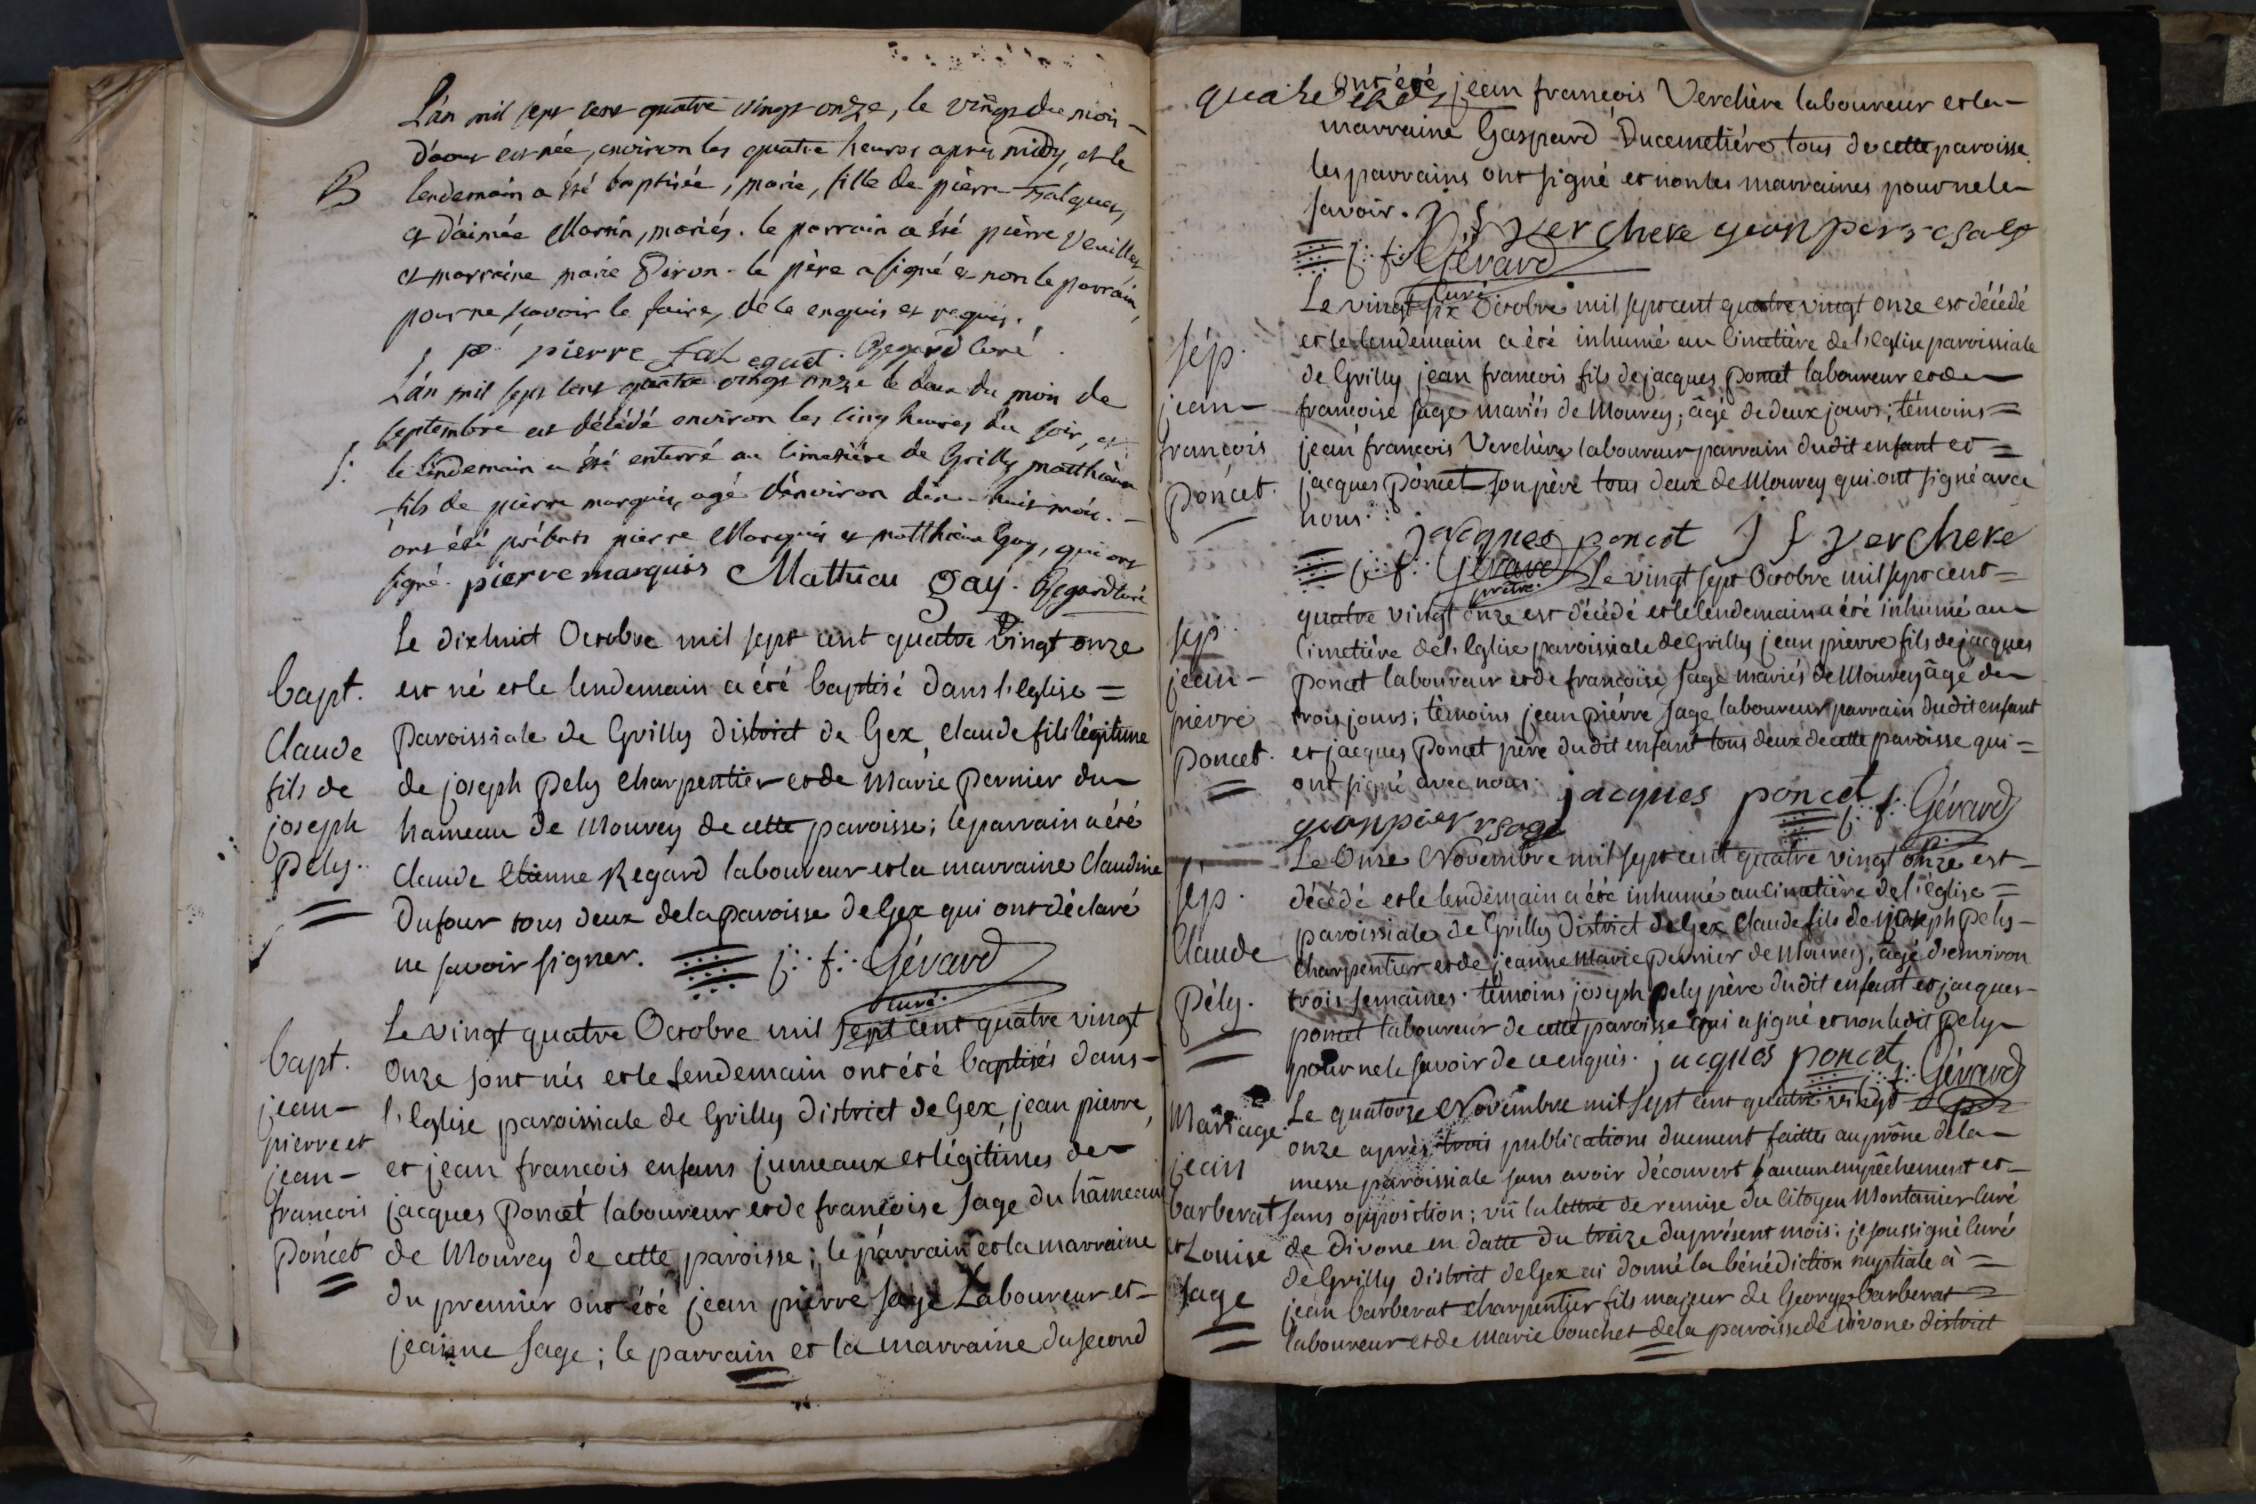 L'an mil sept cent quatre vingt onze, le vingt du moi
d'aout est née, environ les quatre heures après midy, et le
B
lendemain a été baptisée, marie, fille de pièrre falquet,
et d'aimée Martin, mariés. le parrain a été pièrre veuillet
et marraine marie Piron. le père a signé et non le parrain,
pour ne sçavoir le faire, de ce enquis et requis.
pierre fal quet. Regard curé.
L'an mil sept cent quatre vingt onze le deux du mois de
septembre est décédé environ les cinq heures du soir, et
S:
le lendemain a été enterré au cimetière de Grilly matthieu
fils de pierre marquis, agé d'environ dix-huit moi. -
ont été présents pierre Marquis et matthieu Gay, qui ont
signé. pierre marquis Mathieu gay. Regard curé
Le dixhuit Octobre mil sept cent quatre vingt onze
bapt.
Claude
fils de
joseph
Pely.
est né et le lendemain a été baptisé dans l'eglise =
Paroissiale de Grilly district de Gex, claude fils légitime
de joseph Pely charpentier et de Marie Pernier du-
hameau de Mourex de cette paroisse; le parrain a été
Claude Etienne Regard laboureur et la marraine Claudine
Dufour tous deux de la paroisse de Gex qui ont déclaré
ne savoir signer. j: f: Gérard
curé.
Le vingt quatre Octobre mil sept cent quatre vingt
bapt.
jean-
pierre et
jean-
francois
Poncet
Onze sont nés et le lendemain ont été baptisés dans-
l'Eglise paroissiale de Grilly district de Gex, jean pierre,
et jean francois enfans jumeaux et légitimes de-
jacques Poncet laboureur et de francoise Sage du hâmeau
de Mourex de cette paroisse; le parrain et la marraine
du premier ont été jean pierre Sage Laboureur et-
jeanne Sage; le parrain et la marraine du second
ont été jean francois Verchère laboureur et la-
marraine Gaspard Ducemetiére tous de cette paroisse.
les parrains ont signé et non les marraines pour ne le-
savoir. j f verchere
j: f: Gérard
curé
Le vingt six Octobre mil sept cent quatre vingt onze est décédé
sép.
jean-
francois
Poncet.
et le lendemain a été inhumé au cimetière de l'eglise paroissiale
de Grilly jean francois fils de jacques Poncet laboureur et de-
francoise Sage mariés de Mourex, âgé de deux jours; témoins =
jean francois Verchère laboureur parrain dudit enfant et =
jacques Poncet son père tous deux de Mourex qui ont signé avec
nous.
jacques poncet j f verchere
j: f: Gérard
prêtre.
Le vingt sept Octobre mil sept cent =
sép.
jean-
pierre
Poncet.
quatre vingt onze est décédé et le lendemain a été inhumé au-
Cimetière de l'Eglise paroissiale de Grilly jean pierre fils de jacques
Poncet laboureur et de francoise Sage mariés de Mourex âgé de-
trois jours; témoins jean piérre Sage laboureur parrain dudit enfant
et jacques Poncet père dudit enfant tous deux de cette paroisse qui =
ont signé avec nous. jacques poncet j: f: Gérard
Le Onze Novembre mil sept cent quatre vingt onze est-
sép.
Claude
Pély.
décédé et le lendemain a été inhumé au cimetière de l'église =
paroissiale de Grilly District de Gex Claude fils de joseph Pely-
Charpentier et de jeanne Marie Pernier de Mourex, agé d'environ
trois semaines. témoins joseph pely père dudit enfant et jacques-
poncet laboureur de cette paroisse qui a signé et non ledit Pely-
pour ne le savoir de ce enquis. jacques poncet j: f: Gérard
Mariage
jean
barberat
et Louise
Sage
Le quatorze Novembre mil sept cent quatre vingt
onze après trois publications duement faittes au prône de la-
messe paroissiale sans avoir découvert aucun empêchement et-
sans opposition; vû la lettre de remise du Citoyen Montanier Curé
de Divone en datte du treize du présent mois: je soussigné Curé
de Grilly district de Gex ai donné la bénédiction nuptiale à =
jean barberat charpentier fils majeur de George barberat =
laboureur et de Marie bouchet de la paroisse de Divone district